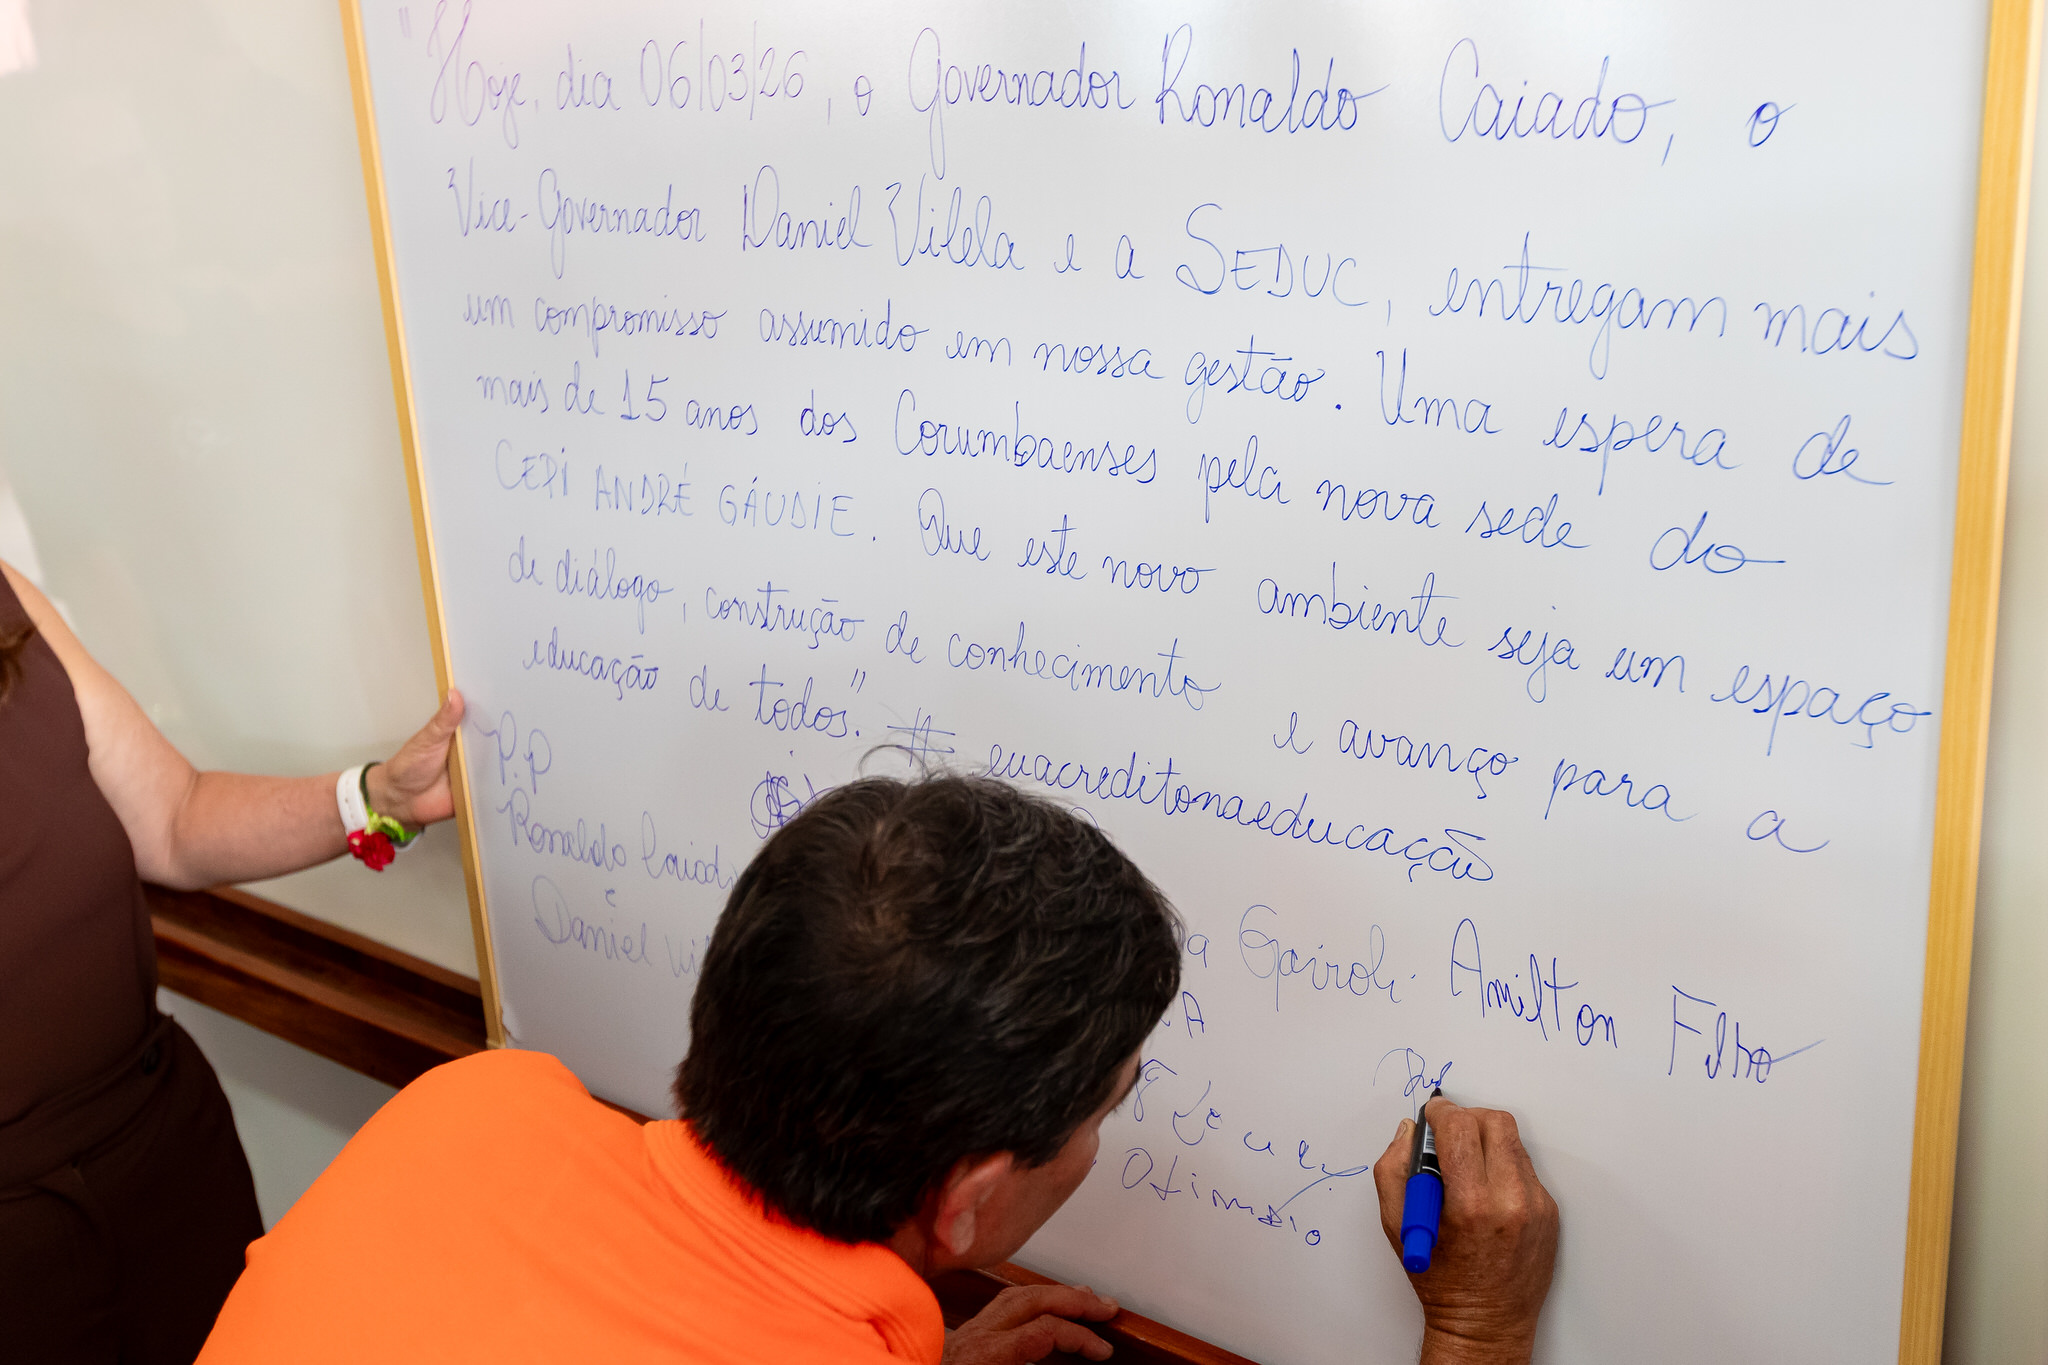 "Hoje, dia 06/03/26, o Governador Ronaldo Caiado, o
Vice-Governador Daniel Vilela e a SEDUC, entregam mais
um compromisso assumido em nossa gestão. Uma espera de
mais de 15 anos dos Corumbaenses pela nova sede do
CEPi ANDRÉ GÁUDIE. Que este novo ambiente seja um espaço
de diálogo, construção de conhecimento e avanço para a
educação de todos." #euacreditonaeducação
P.P
Ronaldo Caiado
Amilton Filho
Daniel